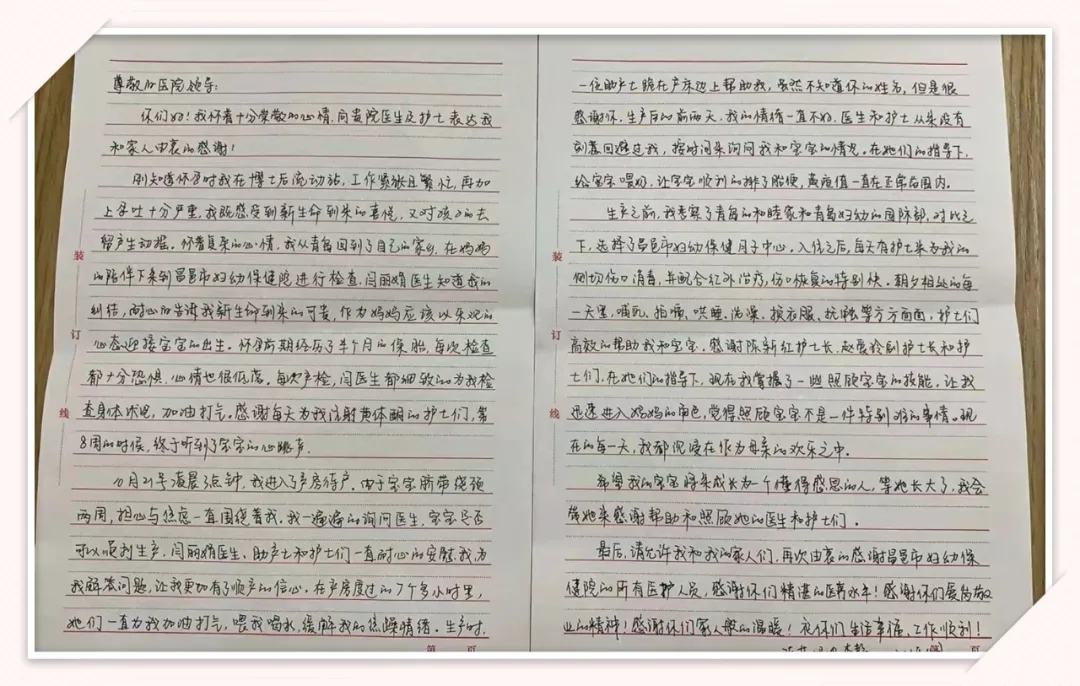 尊敬的医院领导:
你们好!我怀着十分崇敬的心情,向贵院医生及护士表达我
和家人由衷的感谢!
刚知道怀孕时我在博士后流动站,工作紧张且繁忙,再加
上孕吐十分严重,我既感受到新生命到来的喜悦,又对孩子的去
留产生动摇。怀着复杂的心情,我从青岛回到了自己的家乡,在妈妈
的陪伴下来到昌邑市妇幼保健院进行检查,闫丽娟医生知道我的
纠结,耐心的告诉我新生命到来的可贵,作为妈妈应该以乐观的
心态迎接宝宝的出生。怀孕前期经历了半个月的保胎,每次检查
都十分恐惧,心情也很低落。每次产检,闫医生都细致的为我检
查身体状况,加油打气。感谢每天为我注射黄体酮的护士们,第
8周的时候,终于听到了宝宝的心跳声。
10月21号凌晨3点钟,我进入了产房待产。由于宝宝脐带绕颈
两周,担心与焦虑一直围绕着我,我一遍遍的询问医生,宝宝是否
可以顺利生产,闫丽娟医生、助产士和护士们一直耐心的安慰我,为
我解答问题,让我更加有了顺产的信心。在产房度过的7个多小时里,
她们一直为我加油打气,喂我喝水,缓解我的焦躁情绪。生产时,
第 页
一位助产士跪在产床边上帮助我,虽然不知道你的姓名,但是很
感谢你。生产后的前两天,我的情绪一直不好,医生和护士从来没有
刻意回避过我,按时间来询问我和宝宝的情况。在她们的指导下,
给宝宝喂奶,让宝宝顺利的排了胎便,黄疸值一直在正常范围内。
生产之前,我考察了青岛的和睦家和青岛妇幼的国际部,对比之
下,选择了昌邑市妇幼保健月子中心。入住之后,每天有护士来为我的
侧切伤口消毒,并配合红外治疗,伤口恢复的特别快。朝夕相处的每
一天里,哺乳、拍嗝、哄睡、洗澡、换衣服、抚触等方方面面,护士们
高效的帮助我和宝宝。感谢陈新红护士长、赵霞玲副护士长和护
士们,在她们的指导下,现在我掌握了一些照顾宝宝的技能,让我
迅速进入妈妈的角色,觉得照顾宝宝不是一件特别难的事情。现
在的每一天,我都沉浸在作为母亲的欢乐之中。
希望我的宝宝将来成长为一个懂得感恩的人,等她长大了,我会
带她来感谢帮助和照顾她的医生和护士们。
最后,请允许我和我的家人们,再次由衷的感谢昌邑市妇幼保
健院的所有医护人员,感谢你们精湛的医务水平!感谢你们爱岗敬
业的精神!感谢你们家人般的温暖!祝你们生活幸福,工作顺利!
页
装
订
线
装
订
线